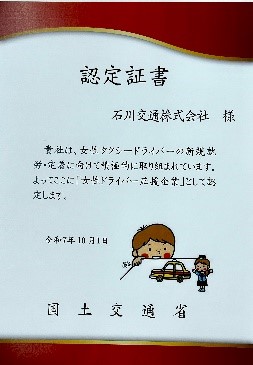 認定証書
石川交通株式会社 様
貴社は、女性タクシードライバーの新規就
労・定着に向けて積極的に取り組まれています。
よってここに「女性ドライバー応援企業」として認
定します。
令和7年10月1日
国土交通省